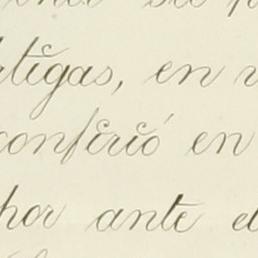 Artigas, en
confirió en
por ante el